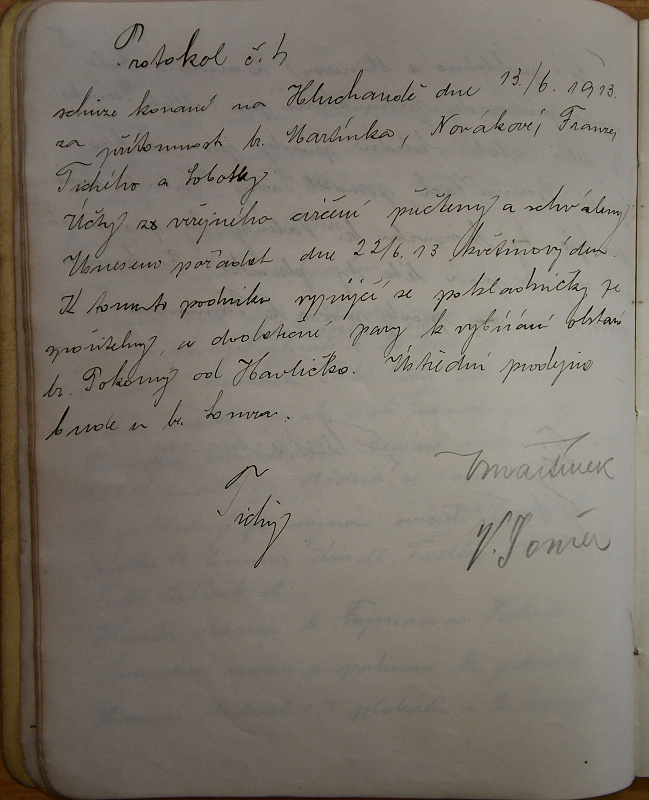 Protokol č. 4
schůze konané na Hluchandě dne 13./6. 1913.
za přítomnosti br. Martínka, Novákové, Franze,
Tichého a Sobotky.
Účty z veřejného cvičení přečteny a schváleny
Usneseno pořádat dne 22/6. 13 květinový den.
K tomuto podniku vypůjčí se pokladničky ze
spořitelny, a dvoleté pasy k vybírání obstará
br. Pokorný od Havlíčka. Ústřední prodejna
bude u br. Somra.
Tichý
Martínek
V. Somr